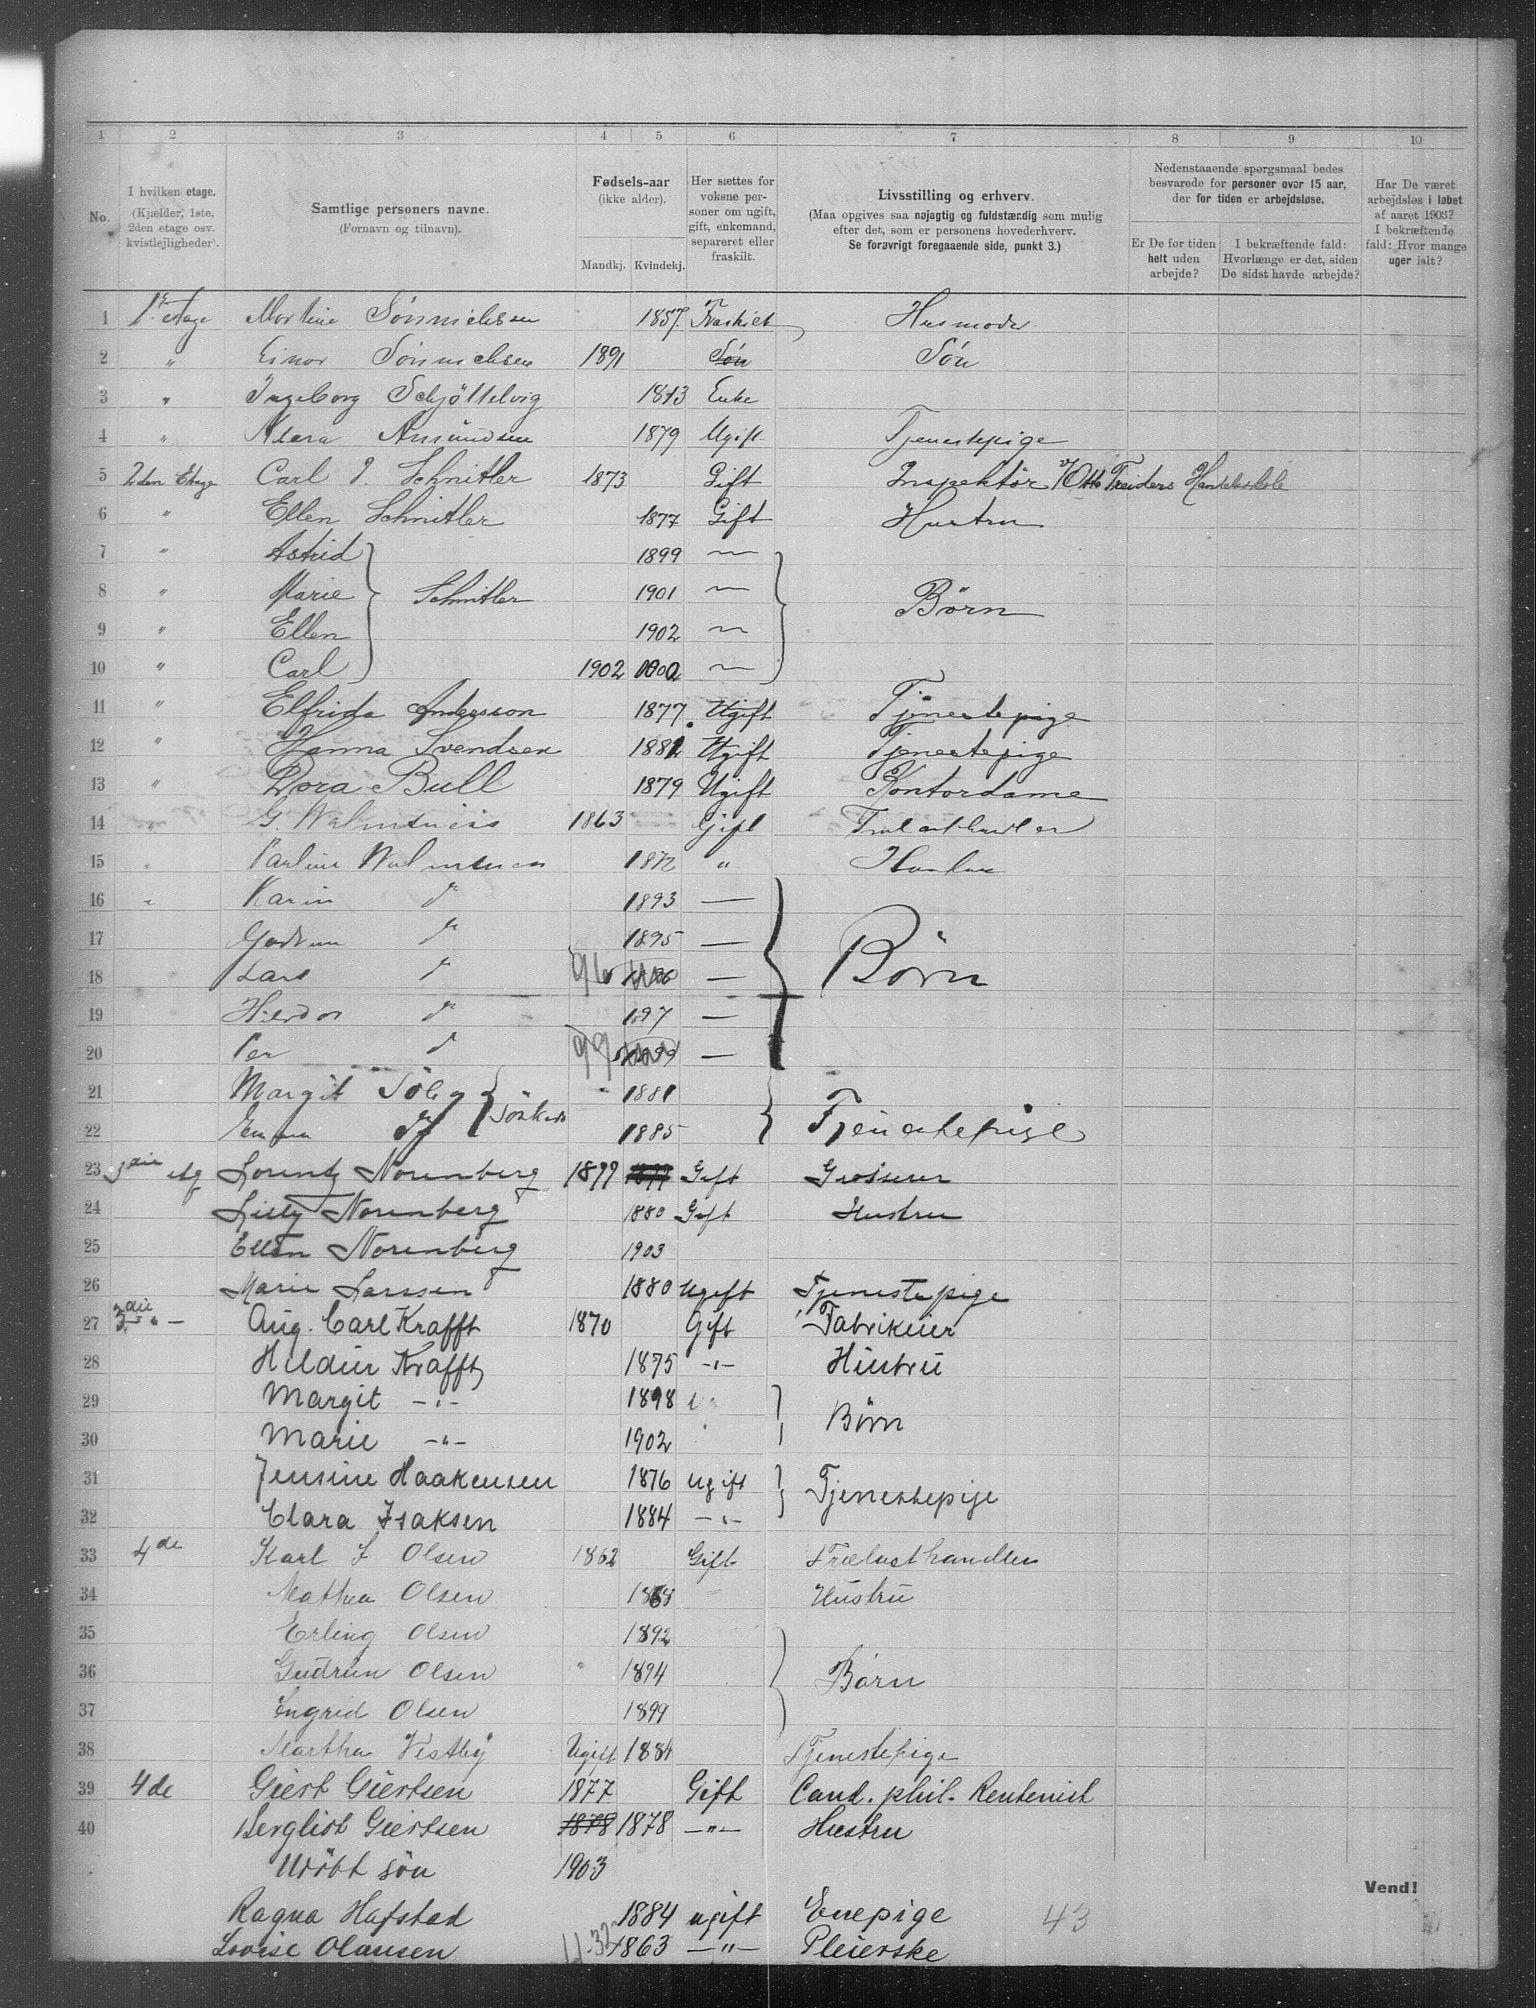 1 2 3 4 5 6 7 8 9 10
No.
I hvilken etage. (Kjælder, 1ste, 2den etage osv. kvistlejligheder).
Samtlige personers navne. (Fornavn og tilnavn).
Fødsels-aar (ikke alder). Mandkj. Kvindekj.
Her sættes for voksne personer om ugift, gift, enkemand, separeret eller fraskilt.
Livsstilling og erhverv. (Maa opgives saa nøjagtig og fuldstærdig som mulig efter det, som er personens hovederhverv. Se forøvrigt foregaaende side, punkt 3.)
Nedenstaaende spørgsmaal bedes besvarede for personer over 15 aar, der for tiden er arbejdsløse.
Er De for tiden helt uden arbejde?
I bekræftende fald: Hvorlænge er det, siden De sidst havde arbejde?
Har De været arbejdsløs i løbet af aaret 1903? I bekræftende fald: Hvor mange uger ialt?
1 1. etage Martine Sönnichsen 1857 Fraskilt Husmoder
2 " Einar Sönnichsen 1891 Sön Sön
3 " Ingeborg Schjöttelvig 1813 Enke
4 " Klara Amundsen 1879 Ugift Tjenestepige
5 2den Etage Carl J. Schnitler 1873 Gift Inspektör v/ Otto Treiders Handelsskole
6 " Ellen Schnitler 1877 Gift Hustru
7 " Astrid 1899 —
8 " Marie Schnitler 1901 — Børn
9 " Ellen 1902 —
10 " Carl 1902 —
11 " Elfrida Andersson 1877 Ugift Tjenestepige
12 " Hanna Svendsen 1881 Ugift Tjenestepige
13 " Dora Bull 1879 Ugift Kontordame
14 " G. 1863 Gift Trælasthandler
15 " 1872 "
16 " Karin d 1893 —
17 Gudrun d 1895 — Børn
18 Lars d 96 —
19 d 1897 —
20 Per d 99 1899 —
21 Margit 1881
22 Emma 1885 Tjenestepige
23 3die etg Lorentz Norenberg 1877 1877 Gift Grosserer
24 Lilly Norenberg 1880 Gift Hustru
25 Ellen Norenberg 1903
26 Marie Larssen 1880 Ugift Tjenestepige
27 3die " — Aug. Carl Krafft 1870 Gift Fabrikeier
28 Hildur Krafft 1875 -"- Hustru
29 Margit -"- 1898 Børn
30 Marie -"- 1902
31 Jensine Haakensen 1876 Ugift Tjenestepige
32 Clara Isaksen 1884 -"-
33 4de Karl J Olsen 1862 Gift Trælasthandler
34 Mathea Olsen 1868 Hustru
35 Erling Olsen 1892
36 Gudrun Olsen " 1894 Børn
37 Ingrid Olsen 1899
38 Martha Vestby Ugift 1884 Tjenestepige
39 4de Giert Giertsen 1877 Gift Cand. phil. Rentenist
40 Bergliot Giertsen 1878 1878 -"- Hustru
Udöbt sön 1903
Vend!
Ragna Hafstad 1884 ugift Enepige 43
Lovise Olausen 11-32 1863 -"- Pleierske